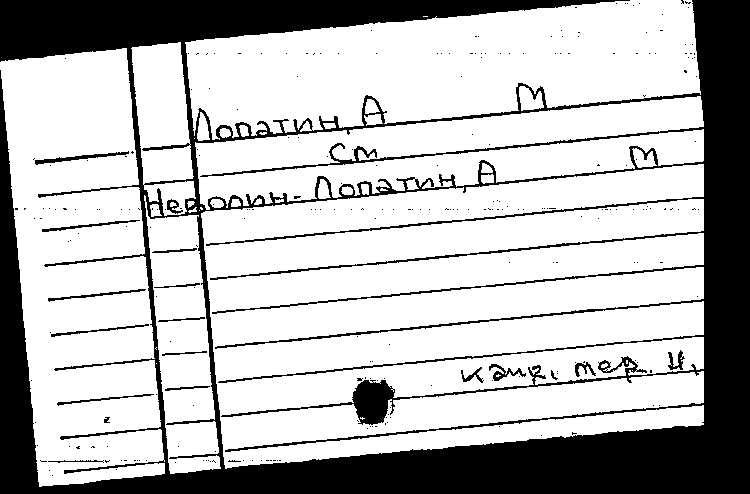 Лопатин, А М
См
Неволин-Лопатин, А М
канд. тер. н.